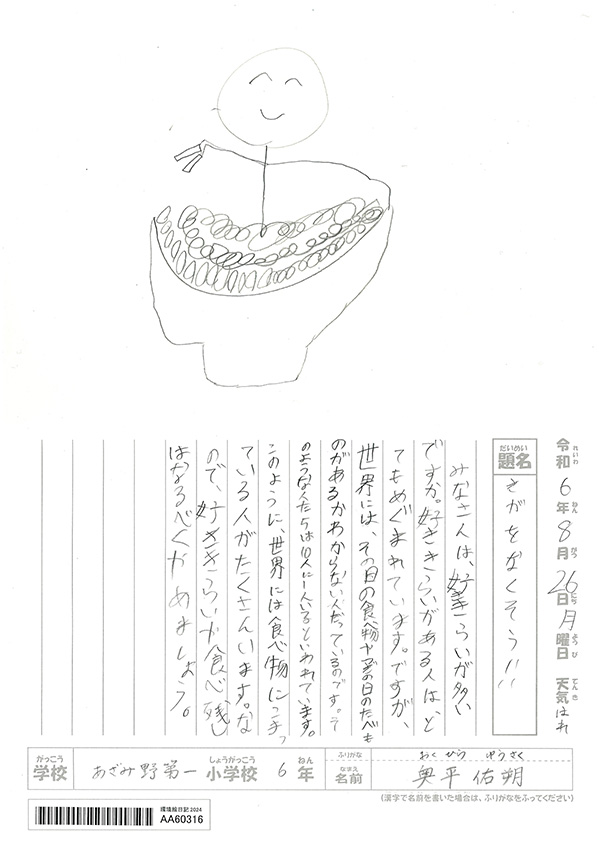 令和6年8月26日月曜日 天気はれ
れいわ ねん がつ にち ようび てんき
だいめい
題名
きがをなくそう!!
みなさんは、好ききらいが多い
ですか。好ききらいがある人は、と
てもめぐまれています。ですが、
世界には、その日の食べ物や次の日のたべも
のがあるかわからない人だっているのです。そ
のような人たちは10人に1人いるといわれています。
このように、世界には食べ物にこまっ
ている人がたくさんいます。な
ので、好ききらいや食べ残し
はなるべくやめましょう。
がっこう
学校
しょうがっこう ねん
あざみ野第一小学校 6年
ふりがな
なまえ
名前
おくひら ゆうさく
奥平佑朔
(漢字で名前を書いた場合は、ふりがなをふってください)
環境絵日記2024
AA60316